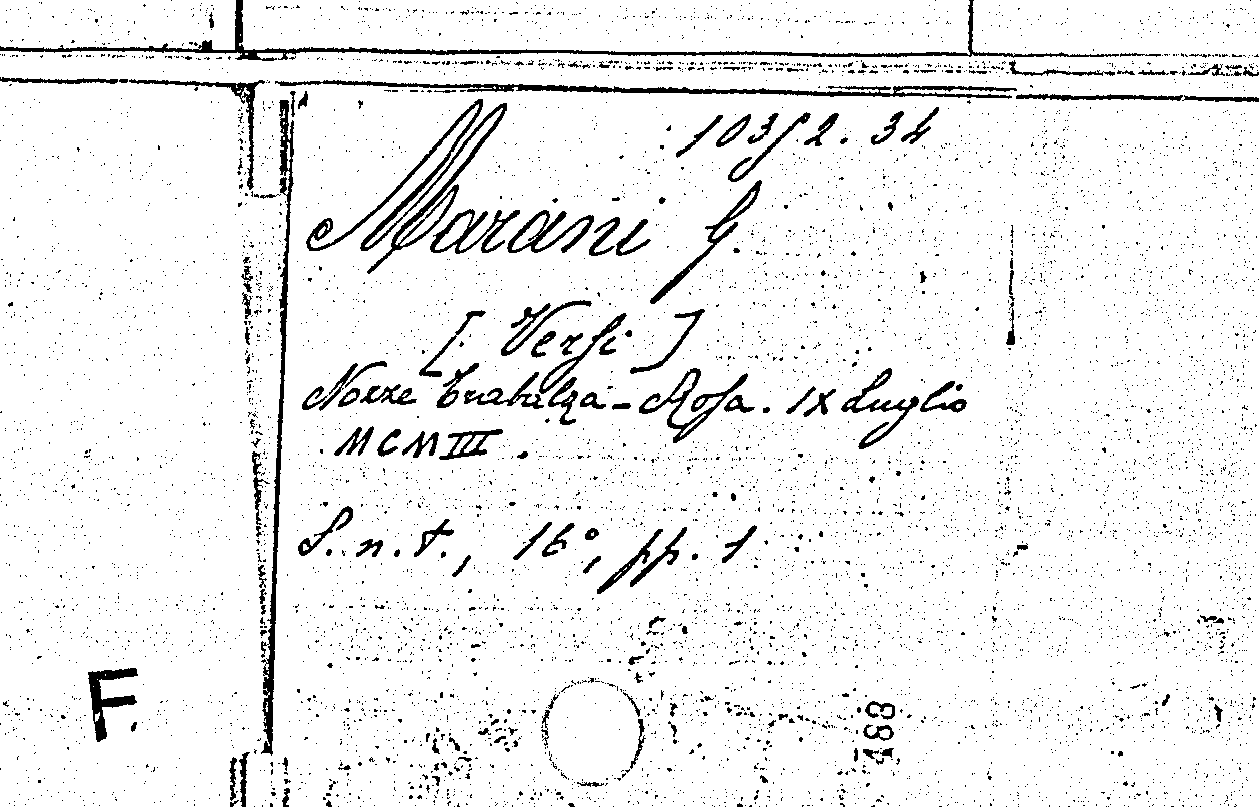 10352.34
Marani G.
[Versi]
Nozze Trabalza-Rosa. IX Luglio
MCMIII.
S.n.t., 16°, pp. 1
F.
488